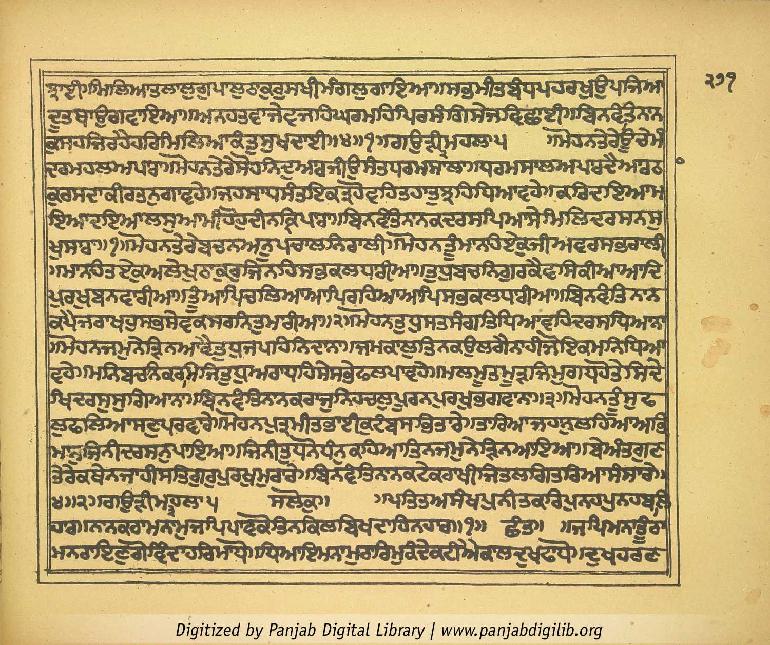 ੜਾਈ॥ਮਿਲਿਆਤਲਾਲੁਗੁਪਾਲੁਠਾਕੁਰੁਸਖੀਮੰਗਲੁਗਾਇਆ॥ਸਭਮੀਤਬੰਧਪਹਰਖੁਉਪਜਿਆ ੨੭੧
ਦੂਤਥਾਉਗਵਾਇਆ॥ਅਨਹਤਵਾਜੇਵਜਹਿਘਰਮਹਿਪਿਰਸੰਗਿਸੇਜਵਿਛਾਈ॥ਬਿਨਵੰਤਿਨਾਨ
ਕੁਸਹਜਿਰਹੈਹਰਿਮਿਲਿਆਕੰਤੁਸੁਖਦਾਈ॥੪॥੧॥ਗਉੜੀਮਹਲਾ੫ ॥ਮੋਹਨਤੇਰੇਊਚੇਮੰ
ਦਰਮਹਲਅਪਾਰਾ॥ਮੋਹਨਤੇਰੇਸੋਹਨਿਦੁਆਰਜੀਉਸੰਤਧਰਮਸਾਲਾ॥ਧਰਮਸਾਲਅਪਾਰਦੈਆਰਠਾ
ਕੁਰਸਦਾਕੀਰਤਨੁਗਾਵਹੇ॥ਜਹਸਾਧਸੰਤਇਕਤ੍ਰਹੋਵਹਿਤਹਾਤੁਝਹਿਧਿਆਵਹੇ॥ਕਰਿਦਇਆਮ
ਇਆਦਇਆਲਸੁਆਮੀਹੋਹੁਦੀਨਕ੍ਰਿਪਾਰਾ॥ਬਿਨਵੰਤਿਨਾਨਕਦਰਸਪਿਆਸੇਮਿਲਿਦਰਸਨਸੁ
ਖੁਸਾਰਾ॥੧॥ਮੋਹਨਤੇਰੇਬਚਨਅਨੂਪਚਾਲਨਿਰਾਲੀ॥ਮੋਹਨਤੂੰਮਾਨਹਿਏਕੁਜੀਅਵਰਸਭਰਾਲੀ
॥ਮਾਨਹਿਤਏਕੁਅਲੇਖੁਠਾਕੁਰੁਜਿਨਹਿਸਭਕਲਧਾਰੀਆ॥ਤੁਧੁਬਚਨਿਗੁਰਕੈਵਸਿਕੀਆਆਦਿ
ਪੁਰਖੁਬਨਵਾਰੀਆ॥ਤੂੰਆਪਿਚਲਿਆਆਪਿਰਹਿਆਆਪਿਸਭਕਲਧਾਰੀਆ॥ਬਿਨਵੰਤਿਨਾਨ
ਕਪੈਜਰਾਖਹੁਸਭਸੇਵਕਸਰਨਿਤੁਮਾਰੀਆ॥੨॥ਮੋਹਨਤੁਧੁਸਤਸੰਗਤਿਧਿਆਵਹਿਦਰਸਧਿਆਨਾ
॥ਮੋਹਨਜਮੁਨੇੜਿਨਆਵੈਤੁਧੁਜਪਹਿਨਿਦਾਨਾ॥ਜਮਕਾਲੁਤਿਨਕਉਲਗੈਨਾਹੀਜੋਇਕਮਨਿਧਿਆ
ਵਹੇ॥ਮਨਿਬਚਨਿਕਰਮਿਜਿਤੁਧੁਅਰਾਧਹਿਸੇਸਭੇਫਲਪਾਵਹੇ॥ਮਲਮੂਤਮੂੜਜਿਮੁਗਧਹੋਤੇਸਿਦੇ
ਖਿਦਰਸੁਸੁਗਿਆਨਾ॥ਬਿਨਵੰਤਿਨਾਨਕਰਾਜੁਨਿਹਚਲੁਪੂਰਨਪੁਰਖਭਗਵਾਨਾ॥੩॥ਮੋਹਨਤੂੰਸੁਫ
ਲੁਫਲਿਆਸਣੁਪਰਵਾਰੇ॥ਮੋਹਨਪੁਤ੍ਰਮੀਤਭਾਈਕੁਟੰਬਸਭਿਤਾਰੇ॥ਤਾਰਿਆਜਹਾਨੁਲਹਿਆਅਭਿ
ਮਾਨੁਜਿਨੀਦਰਸਨੁਪਾਇਆ॥ਜਿਨੀਤੁਧਨੋਧੰਨੁਕਹਿਆਤਿਨਜਮੁਨੇੜਿਨਆਇਆ॥ਬੇਅੰਤਗੁਣ
ਤੇਰੇਕਥੇਨਜਾਹੀਸਤਿਗੁਰਪੁਰਖਮੁਰਾਰੇ॥ਬਿਨਵੰਤਿਨਾਨਕਟੇਕਰਾਖੀਜਿਤੁਲਗਿਤਰਿਆਸੰਸਾਰੇ॥
੪॥੨॥ਗਉੜੀਮਹਲਾ੫ ਸਲੋਕੁ॥ ॥ਪਤਿਤਅਸੰਖਪੁਨੀਤਕਰਿਪੁਨਹਪੁਨਹਬਲਿ
ਹਾਰ॥ਨਾਨਕਰਾਮਨਾਮੁਜਪਿਪਾਵਕੋਤਿਨਕਿਲਬਿਖਦਾਹਨਹਾਰ॥੧॥ ਛੰਤ॥ ॥ਜਪਿਮਨਾਤੂੰਰਾ
ਮਨਰਾਇਣੁਗੋਵਿੰਦਾਹਰਿਮਾਧੋ॥ਧਿਆਇਮਨਾਮੁਰਾਰਿਮੁਕੰਦੇਕਟੀਐਕਾਲਦੁਖਫਾਧੋ॥ਦੁਖਹਰਣ
Digitized by Panjab Digital Library | www.panjabdigilib.org